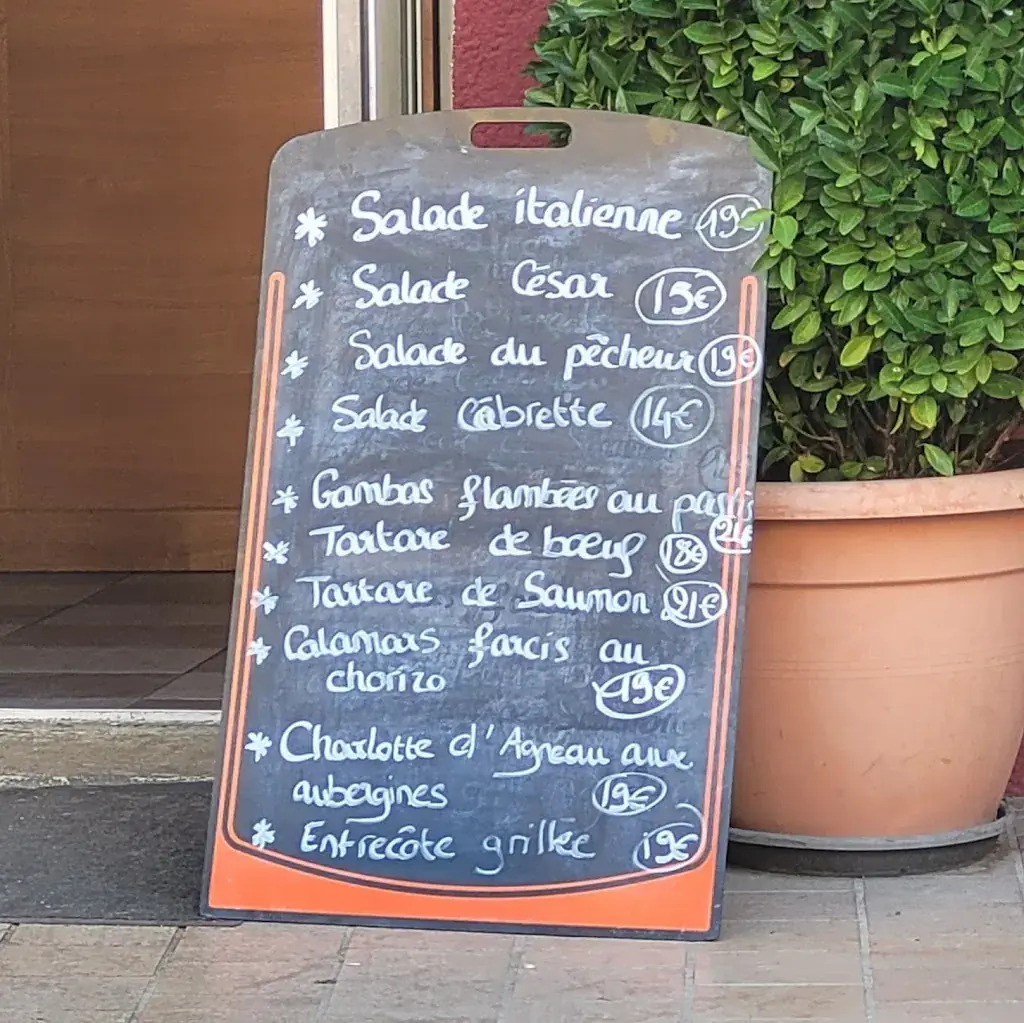 * Salade italienne 19€
* Salade César 15€
* Salade du pêcheur 19€
* Salade Cabrette 14€
* Gambas flambées au pastis
21€
* Tartare de bœuf 18€
* Tartare de Saumon 21€
* Calamars farcis au
chorizo 19€
* Charlotte d'Agneau aux
aubergines 19€
* Entrecôte grillée 19€